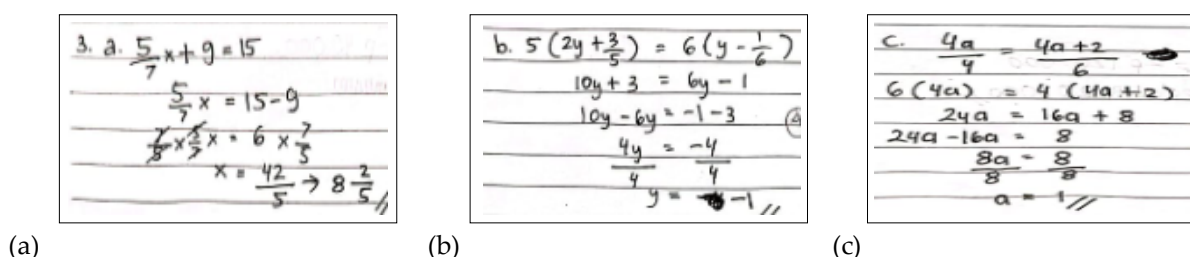 3. a. 5/7 x + 9 = 15
5/7 x = 15 - 9
7/5 × 5/7 x = 6 × 7/5
x = 42/5 → 8 2/5 //
(a)
b. 5 (2y + 3/5) = 6 (y - 1/6)
10y + 3 = 6y - 1
10y - 6y = -1 - 3
4y/4 = -4/4
y = -1 //
(b)
c. 4a/4 = 4a + 2/6
6 (4a) = 4 (4a + 2)
24a = 16a + 8
24a - 16a = 8
8a/8 = 8/8
a = 1 //
(c)